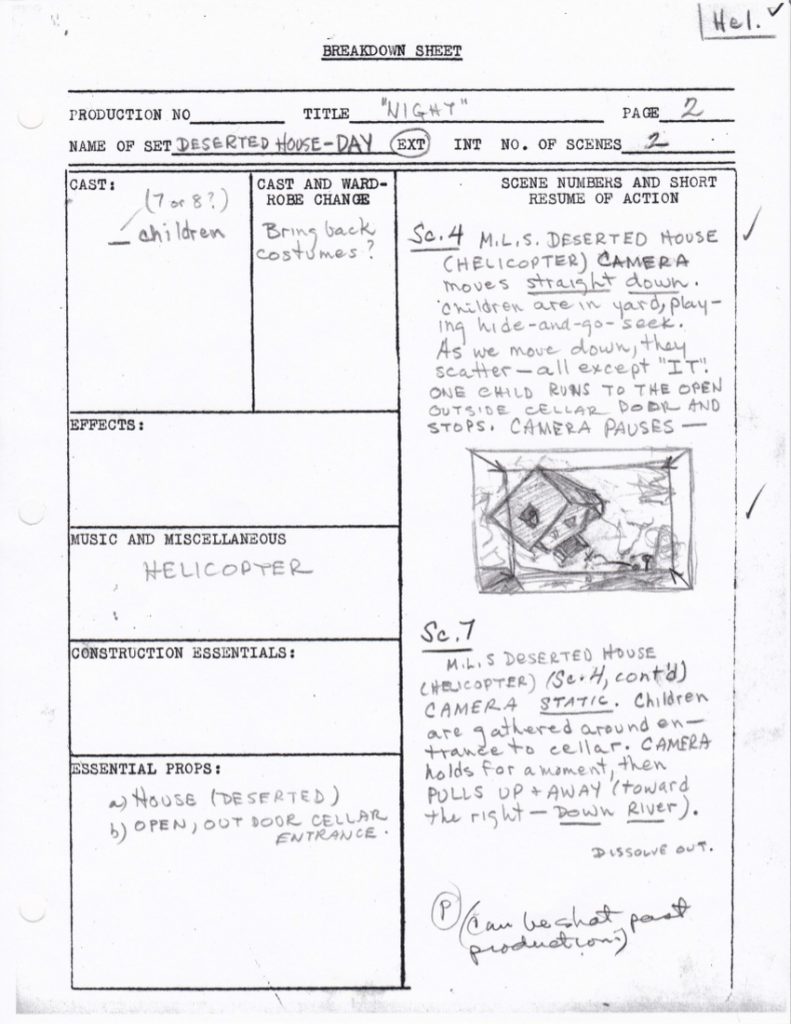 Hel. ✓
BREAKDOWN SHEET
PRODUCTION NO TITLE "NIGHT" PAGE 2
NAME OF SET DESERTED HOUSE-DAY EXT INT NO. OF SCENES 2
CAST:
(7 or 8?)
children
CAST AND WARD-
ROBE CHANGE
Bring back
costumes?
EFFECTS:
MUSIC AND MISCELLANEOUS
HELICOPTER
CONSTRUCTION ESSENTIALS:
ESSENTIAL PROPS:
a) HOUSE (DESERTED)
b) OPEN, OUT DOOR CELLAR
ENTRANCE.
SCENE NUMBERS AND SHORT
RESUME OF ACTION
Sc. 4 M.L.S. DESERTED HOUSE
(HELICOPTER) CAMERA
moves straight down.
Children are in yard, play-
ing hide-and-go-seek.
As we move down, they
scatter — all except "IT".
ONE CHILD RUNS TO THE OPEN
OUTSIDE CELLAR DOOR AND
STOPS. CAMERA PAUSES —
Sc. 7
M.L.S DESERTED HOUSE
(HELICOPTER) (Sc. 4, cont'd)
CAMERA STATIC. Children
are gathered around en-
trance to cellar. CAMERA
holds for a moment, then
PULLS UP + AWAY (toward
the right — Down River).
DISSOLVE OUT.
P (Can be shot past
production)